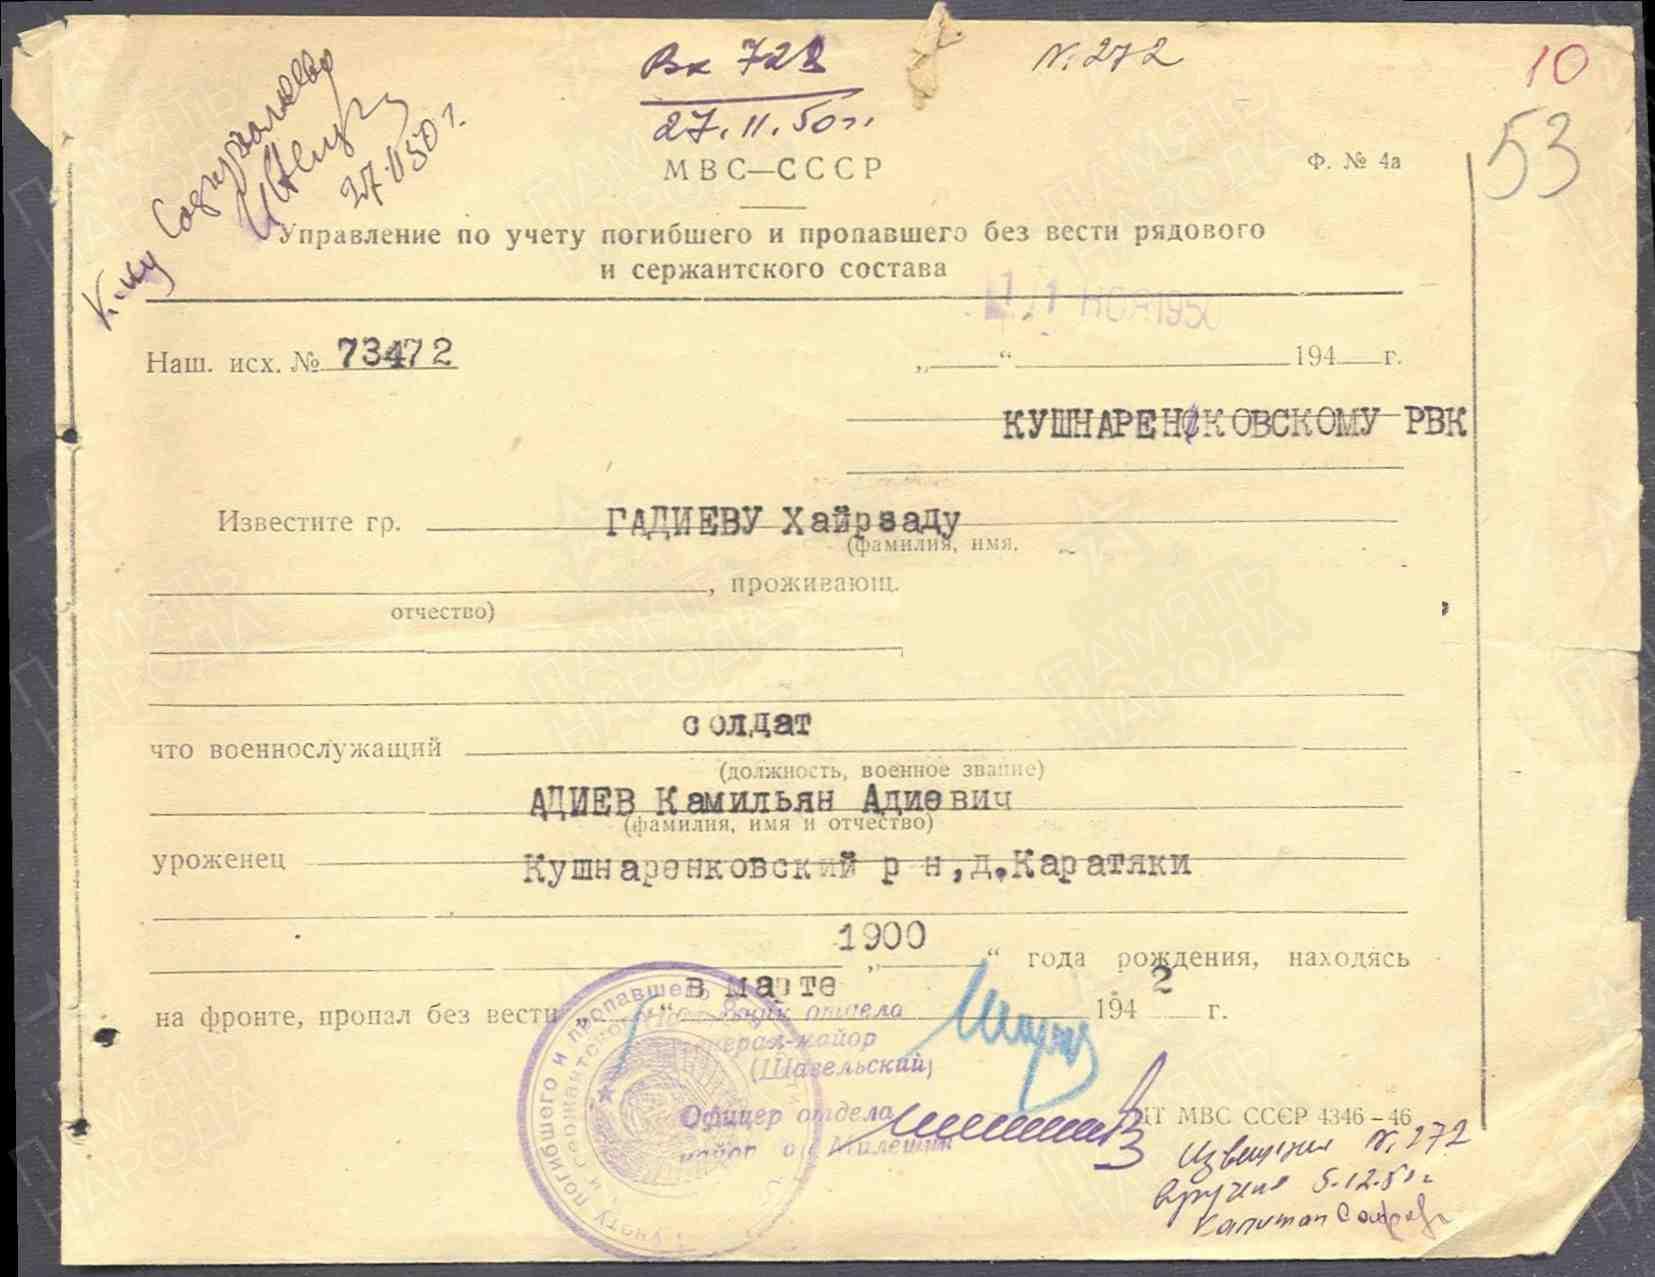 Вх 728
27.11.50г.
N. 272
10
53
27.11.50г.
МВС—СССР
Ф. № 4а
Управление по учету погибшего и пропавшего без вести рядового
и сержантского состава
11 НОЯ 1950
Наш. исх. № 73472
„ “ 194 г.
КУШНАРЕНКОВСКОМУ РВК
Известите гр. ГАДИЕВУ Хайрзаду
(фамилия, имя,
, проживающ.
отчество)
солдат
что военнослужащий
(должность, военное звание)
АДИЕВ Камильян Адиевич
(фамилия, имя и отчество)
уроженец Кушнаренковский р н,д.Каратяки
1900
„ “ года рождения, находясь
на фронте, пропал без вести „ “ в марте 1942 г.
отдела
генерал-майор
(Шавельский)
Офицер отдела
майор
ЦТ МВС СССР 4346-46
Извещение N. 272
вручено 5.12.50г.
Капитан
ПАМЯТЬ
НАРОДА